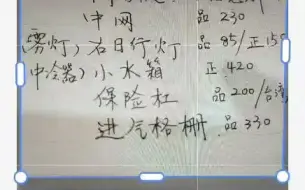 中网 品 230
(雾灯) 右日行灯 品 85/正155
中冷器) 小水箱 正.420
保险杠 品 200/台湾
进气格栅 品 330